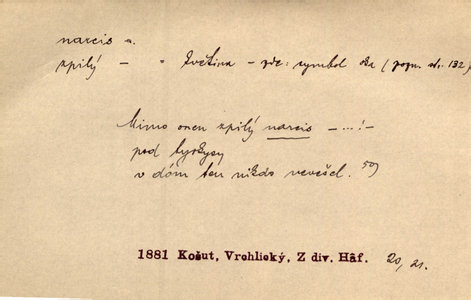 narcis m.
zpilý — " květina – zde: symbol oka (pozn. str. 132)
Mimo onen zpilý narcis — ...! —
pod tyrkysy
v dóm ten nikdo nevešel. 50)
1881 Košut, Vrchlický, Z div. Háf. 20, 21.